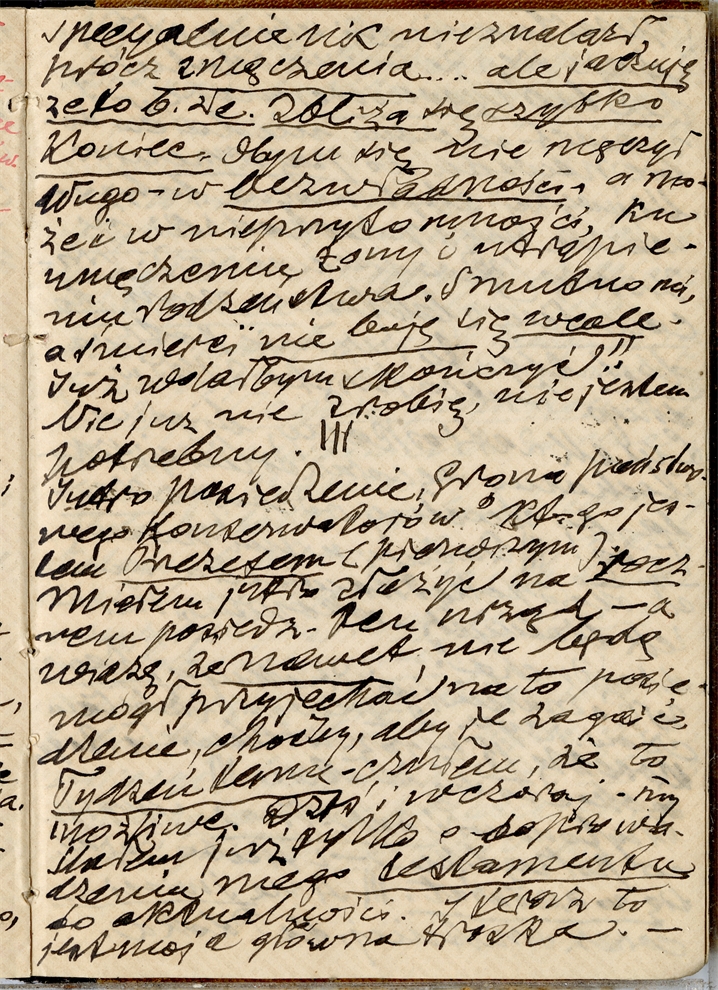 specyalnie nik nieznalazł,
prócz zmęczenia.... ale ja czuję
że to b. źle. Zbliża się szybko
Koniec. Obym się nie męczył
długo - w bezwładności, a mo-
żeć w nieprzytomności, ku
umęczeniu żony i utrapie-
niu rodzeństwa. Smutno mi,
a śmierci nie boję się wcale.
Już wolałbym skończyć!!
Nic już nie zrobię, nie jestem
potrzebny. |||
Jutro posiedzenie, Grona państwo-
wego Konserwatorów którego jes-
tem Prezesem (pierwszym).
Miałem jutro złożyć na rocz-
nem posiedz. ten urząd — a
widzę, że nawet nie będę
mógł przyjechać na to posie-
dzenie, choćby, aby je zagaić
Tydzień temu - czułem, że to
możliwe. Dziś i wczoraj - my
ślałem już tylko o doprowa-
dzeniu mego testamentu
do aktualności. I teraz to
jest moja główna troska. —